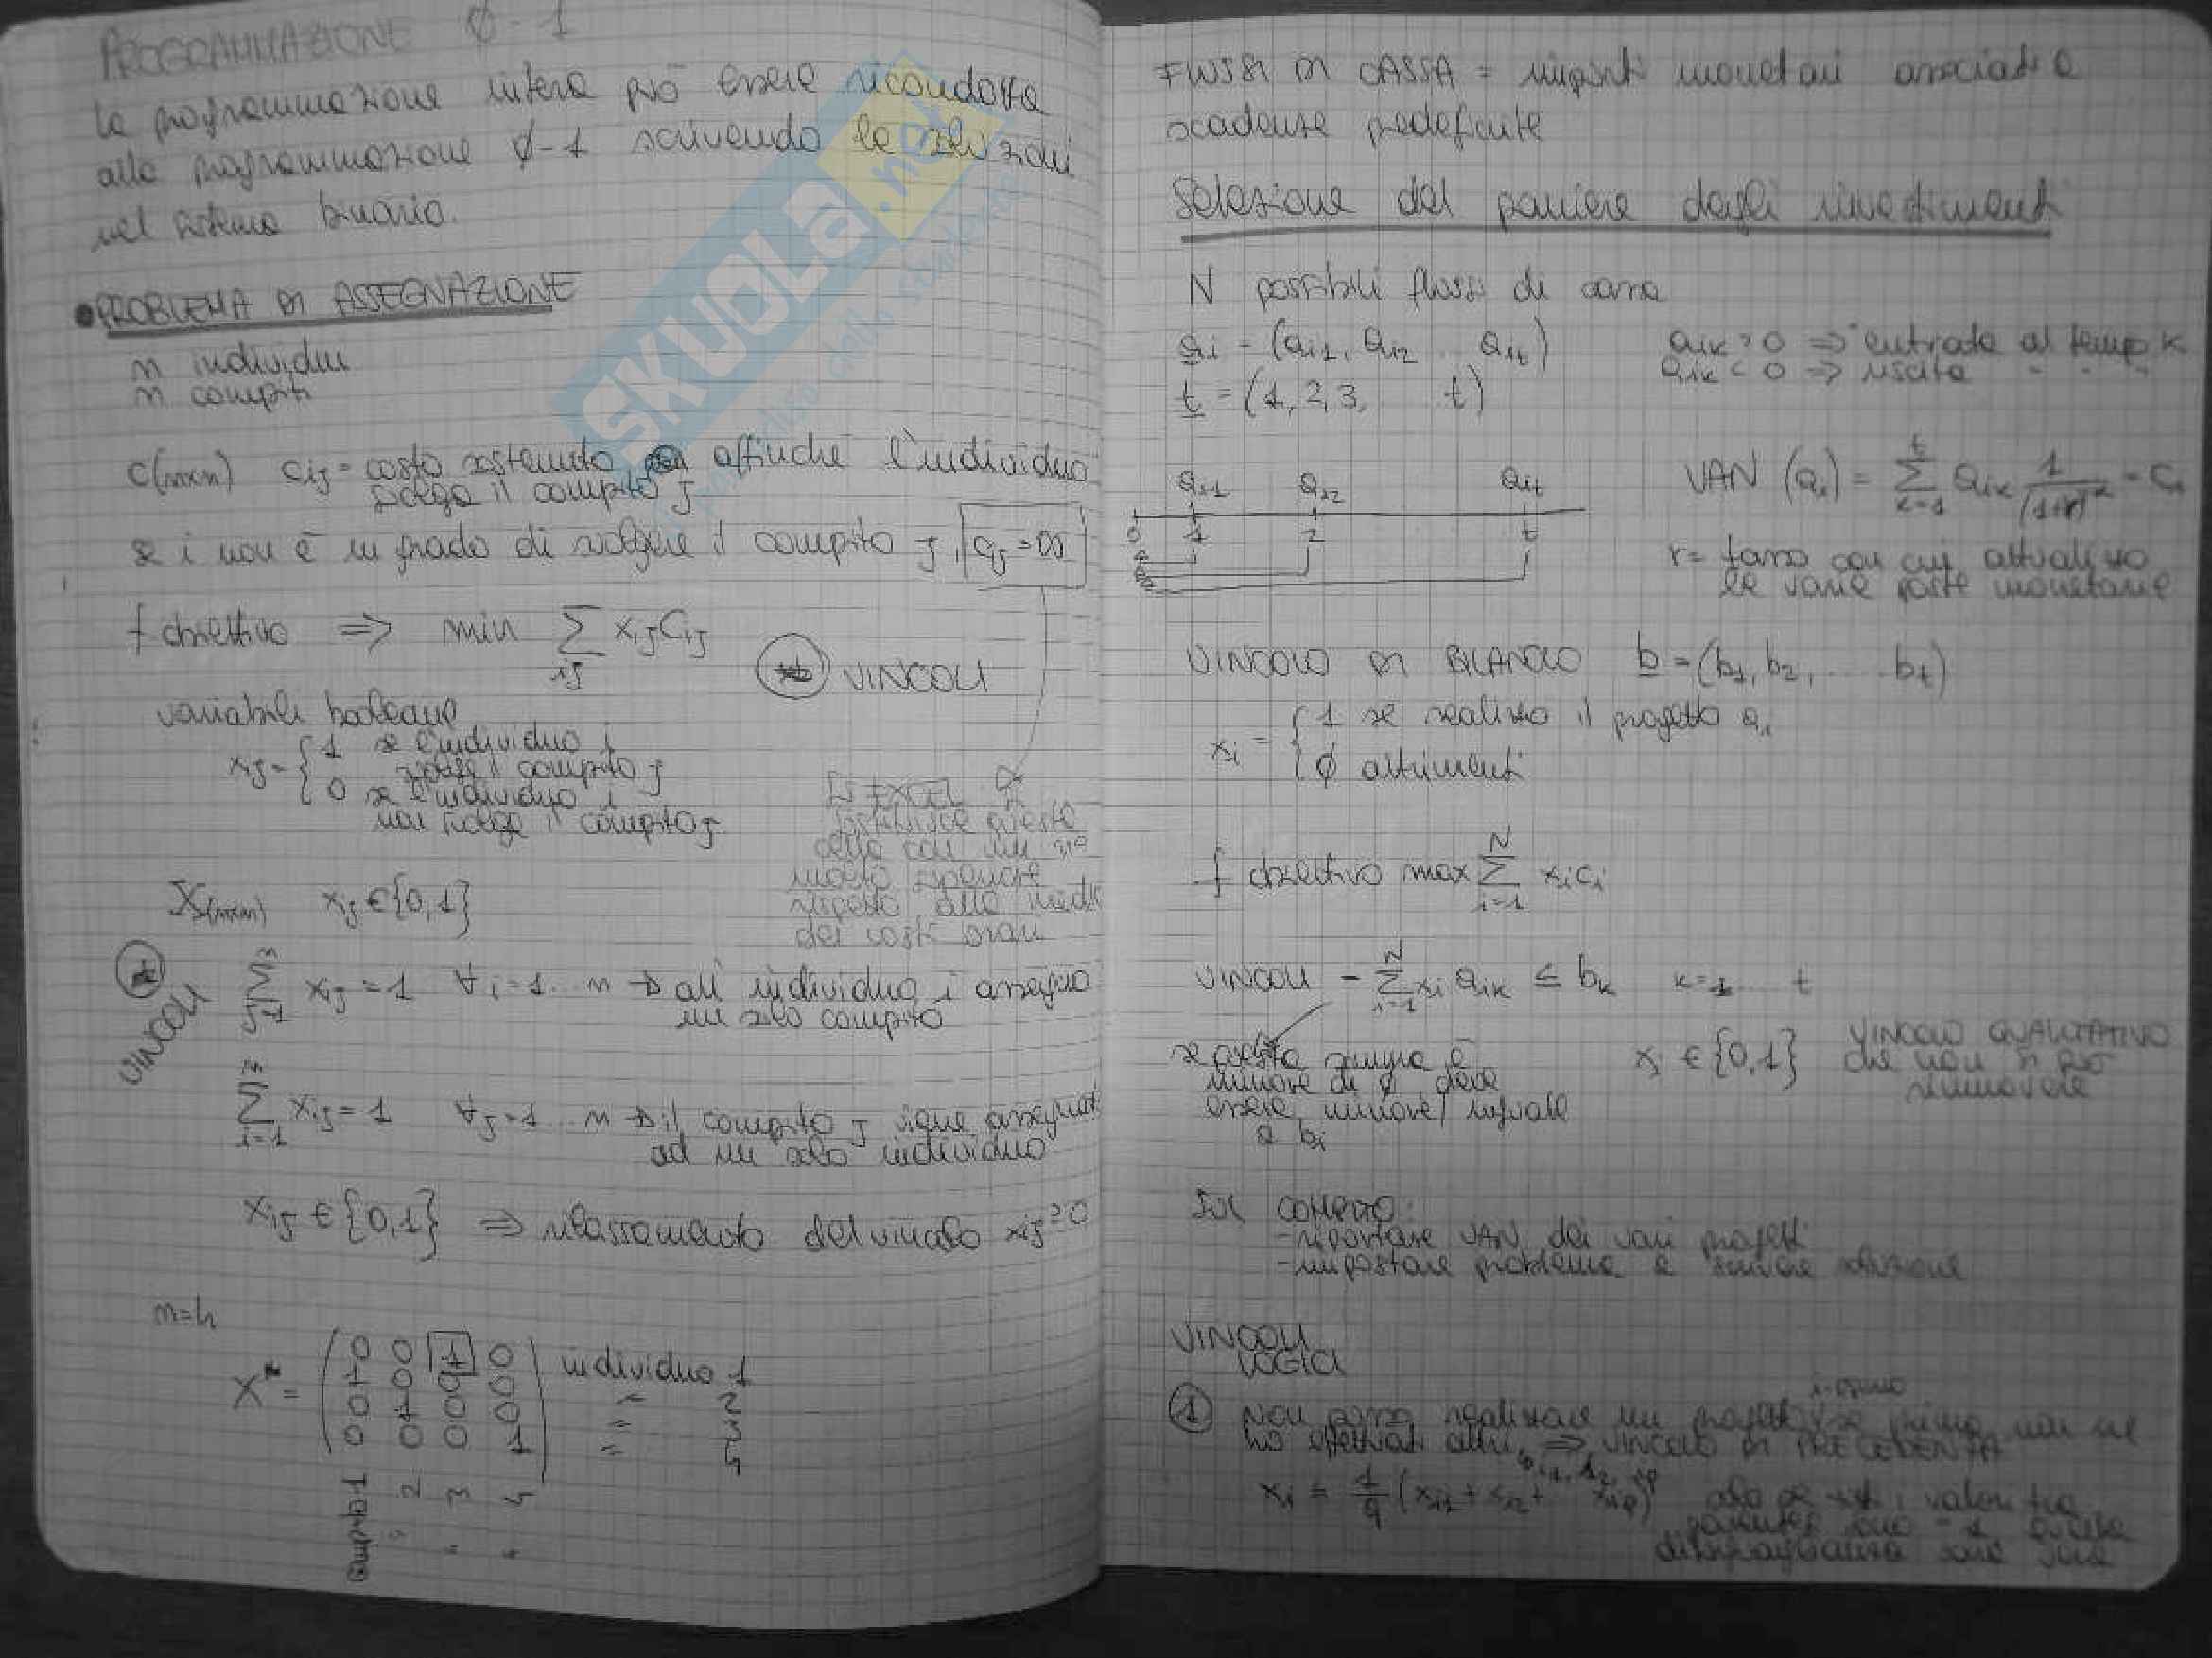 PROGRAMMAZIONE Ø-1
la programmazione intera può essere ricondotta
alla programmazione Ø-1 scrivendo le soluzioni
nel sistema binario.
PROBLEMA DI ASSEGNAZIONE
n individui
n compiti
C(nxn) cij = costo sostenuto affinché l'individuo
svolga il compito j
se i non è in grado di svolgere il compito j, cij = ∞
f obiettivo ⇒ min Σ xij cij
ij
VINCOLI
variabili booleane
xij = { 1 se l'individuo i
svolge il compito j
0 se l'individuo i
non svolge il compito j
EXCEL
sostituisce questo
con un n°
molto superiore
rispetto alla media
dei costi orari
X(nxn) xij ∈ {0,1}
VINCOLI
Σ j=1 n xij = 1 ∀i=1.. n → all'individuo i assegno
un solo compito
Σ i=1 n xij = 1 ∀j=1... n → il compito j viene assegnato
ad un solo individuo
xij ∈ {0,1} ⇒ rilassamento del vincolo xij ≥ 0
n=4
X* =
0 0 1 0 individuo 1
1 0 0 0 " 2
0 1 0 0 " 3
0 0 0 1 " 4
compito 1
" 2
" 3
" 4
FLUSSI DI CASSA = importi monetari associati a
scadenze predefinite
Selezione del paniere degli investimenti
N possibili flussi di cassa
ai = (ai1, ai2 ... ait)
aik > 0 ⇒ entrata al tempo k
aik < 0 ⇒ uscita " " "
t = (1, 2, 3, ... t)
ai1 ai2 ait
0 1 2 t
VAN (ai) = Σ k=1 t aik 1/(1+r)^k = ci
r = tasso con cui attualizzo
le varie poste monetarie
VINCOLO DI BILANCIO b = (b1, b2, ... bt)
xi = { 1 se realizzo il progetto ai
Ø altrimenti
f obiettivo max Σ i=1 N xi ci
VINCOLI - Σ i=1 N xi aik ≤ bk k=1... t
se questa somma è
minore di Ø deve
essere minore/uguale
a bi
xi ∈ {0,1} VINCOLO QUALITATIVO
che non si può
rimuovere
Sul compito:
- riportare VAN dei vari progetti
- impostare problema e scrivere soluzione
VINCOLI
LOGICI
① Non posso realizzare un progetto i-esimo se prima non ne
ho effettuati altri ⇒ VINCOLO DI PRECEDENZA
solo se tutti i valori tra
parentesi sono = 1 questa
disuguaglianza
SKUOLA.net